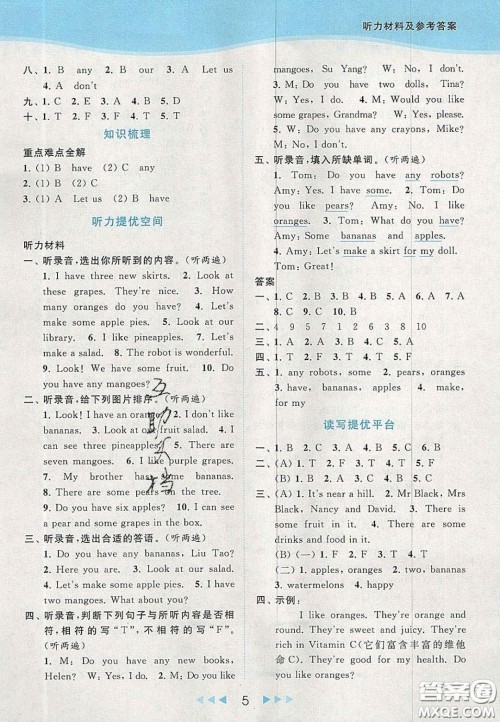 听力材料及参考答案
八、1. B any 2. B or 3. A Let us
4. A don't
九、1. C 2. E 3. A 4. B 5. D
十、1. T 2. F 3. F 4. F 5. T
知识梳理
重点难点全解
1. (1) B have (2) C any
2. (1) B (2) C
3. (1) A Let us (2) B have
听力提优空间
听力材料
一、听录音,选出你所听到的内容。(听两遍)
1. I have three new skirts. 2. Look at
these grapes. They're nice. 3. How
many oranges do you have? 4. Let's
make some apple pies. 5. Look at our
library. 6. I have twelve pineapples.
7. Let's make a salad. 8. The robot is wonderful.
9. Look! We have some fruit. 10. Do
you have any mangoes?
二、听录音,给下列图片排序。(听两遍)
1. I have an orange. 2. I don't like
bananas. 3. Look at our fruit salad. 4. I
can see three pineapples. 5. There are
seven mangoes. 6. I like purple grapes.
7. My brother has some bananas.
8. There are some pears on the tree.
9. Do you have six apples? 10. I can
see a pear and some grapes in the box.
三、听录音,选出合适的答语。(听两遍)
1. Do you have any bananas, Liu Tao?
2. How many grapes do you have?
3. Let's make some apple pies. 4. I have
two mangoes. What about you?
四、听录音,判断下列句子与所听内容是否相
符,相符的写“T”,不相符的写“F”。(听
两遍)
1. M: Do you have any new books,
Helen? W: Yes, I do. 2. W: Do you have any
mangoes, Su Yang? W: No, I don't.
3. M: Do you have two dolls, Tina?
W: Yes, I do. 4. M: Would you like
some grapes, Grandma? W: Yes, please.
5. M: Do you have any crayons, Mike?
W: No, I don't.
五、听录音,填入所缺单词。(听两遍)
1. Tom: Do you have any robots?
Amy: Yes, I have some. 2. Tom: Do
you like pears? Amy: No. I like
oranges. 3. Tom: What do you have?
Amy: Some bananas and apples.
4. Amy: Let's make a skirt for my doll.
Tom: Great!
答案
一、1. C 2. B 3. B 4. B 5. A
6. B 7. A 8. C 9. C 10. C
二、4 9 5 7 1 2 6 3 8 10
三、1. A 2. B 3. A 4. C
四、1. T 2. F 3. T 4. T 5. F
五、1. any robots, have some 2. like pears,
like oranges 3. have, bananas, apples 4. make,
for my
读写提优平台
一、1. T 2. F 3. F 4. T 5. T
二、(A) 1. F 2. T 3. T 4. F 5. F
三、(A) 1. It's near a hill. 2. Mr Black, Mrs
Black, Nancy and David. 3. Fourteen.
4. They're looking at some oranges.
5. some of the fruit
(B) (一) 1. F 2. T 3. F
(二) 1. a, have 2. and, bananas
3. watermelons 4. happy
四、示例:
I like oranges. They're orange and
round. They're sweet and juicy. They're
rich in Vitamin C (它们富含丰富的维他
命 C). They're good for my health. Do
you like oranges?
互助文档
5
答案圈
MXQE.COM